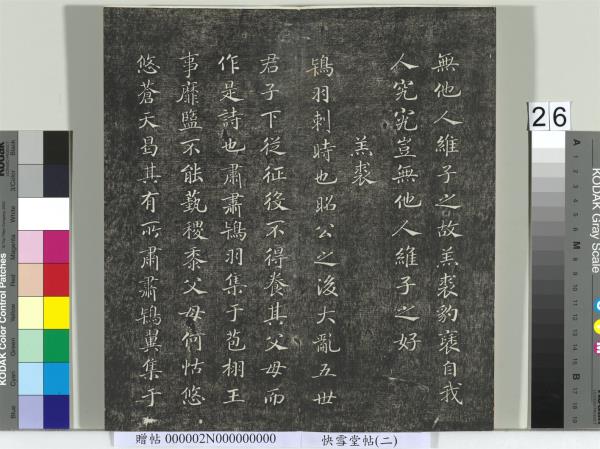 無他人維子之故羔裘豹褎自我
人究究豈無他人維子之好
羔裘
鴇羽刺時也昭公之後大亂五世
君子下從征役不得養其父母而
作是詩也肅肅鴇羽集于苞栩王
事靡盬不能蓺稷黍父母何怙悠
悠蒼天曷其有所肅肅鴇翼集于
26
KODAK Color Control Patches
Blue
Cyan
Green
Yellow
Red
Magenta
White
3/Color
Black
KODAK Gray Scale
A 1 2 3 4 5 6 M 8 9 10 11 12 13 14 15 B 17 18 19
C
Y
M
贈帖 000002N000000000 快雪堂帖(二)